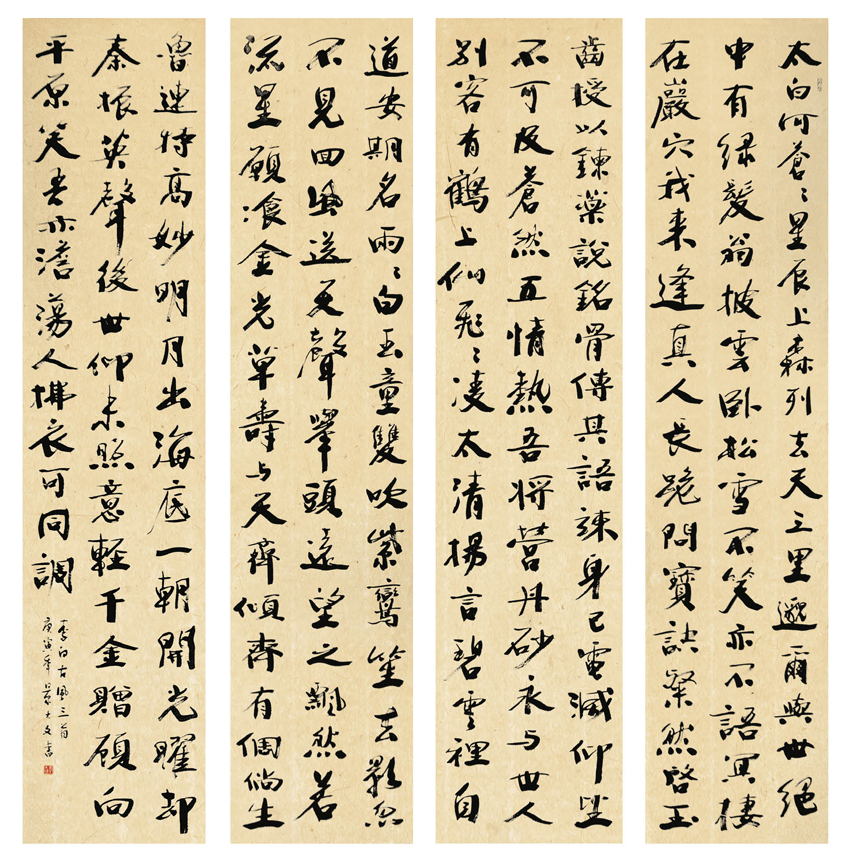 太白何蒼〻星辰上森列去天三里邈爾與世絕
中有绿髮翁披雲卧松雪不笑亦不語冥棲
在巖穴我来逢真人長跪問寶訣粲然啓玉
齒授以鍊藥說銘骨傳其語竦身已電滅仰望
不可及蒼然五情熱吾將營丹砂永与世人
别客有鶴上仙飛〻凌太清揚言碧雲裡自
道安期名兩〻白玉童雙吹紫鸞笙去影忽
不見回風送天聲舉頭遠望之飄然若
流星願飡金光草壽与天齊傾齊有倜倘生
魯連特高妙明月出海底一朝開光曜却
秦振英聲後世仰末照意輕千金贈顧向
平原笑吾亦澹蕩人拂衣可同調
李白古風三首
庚寅年景大文書